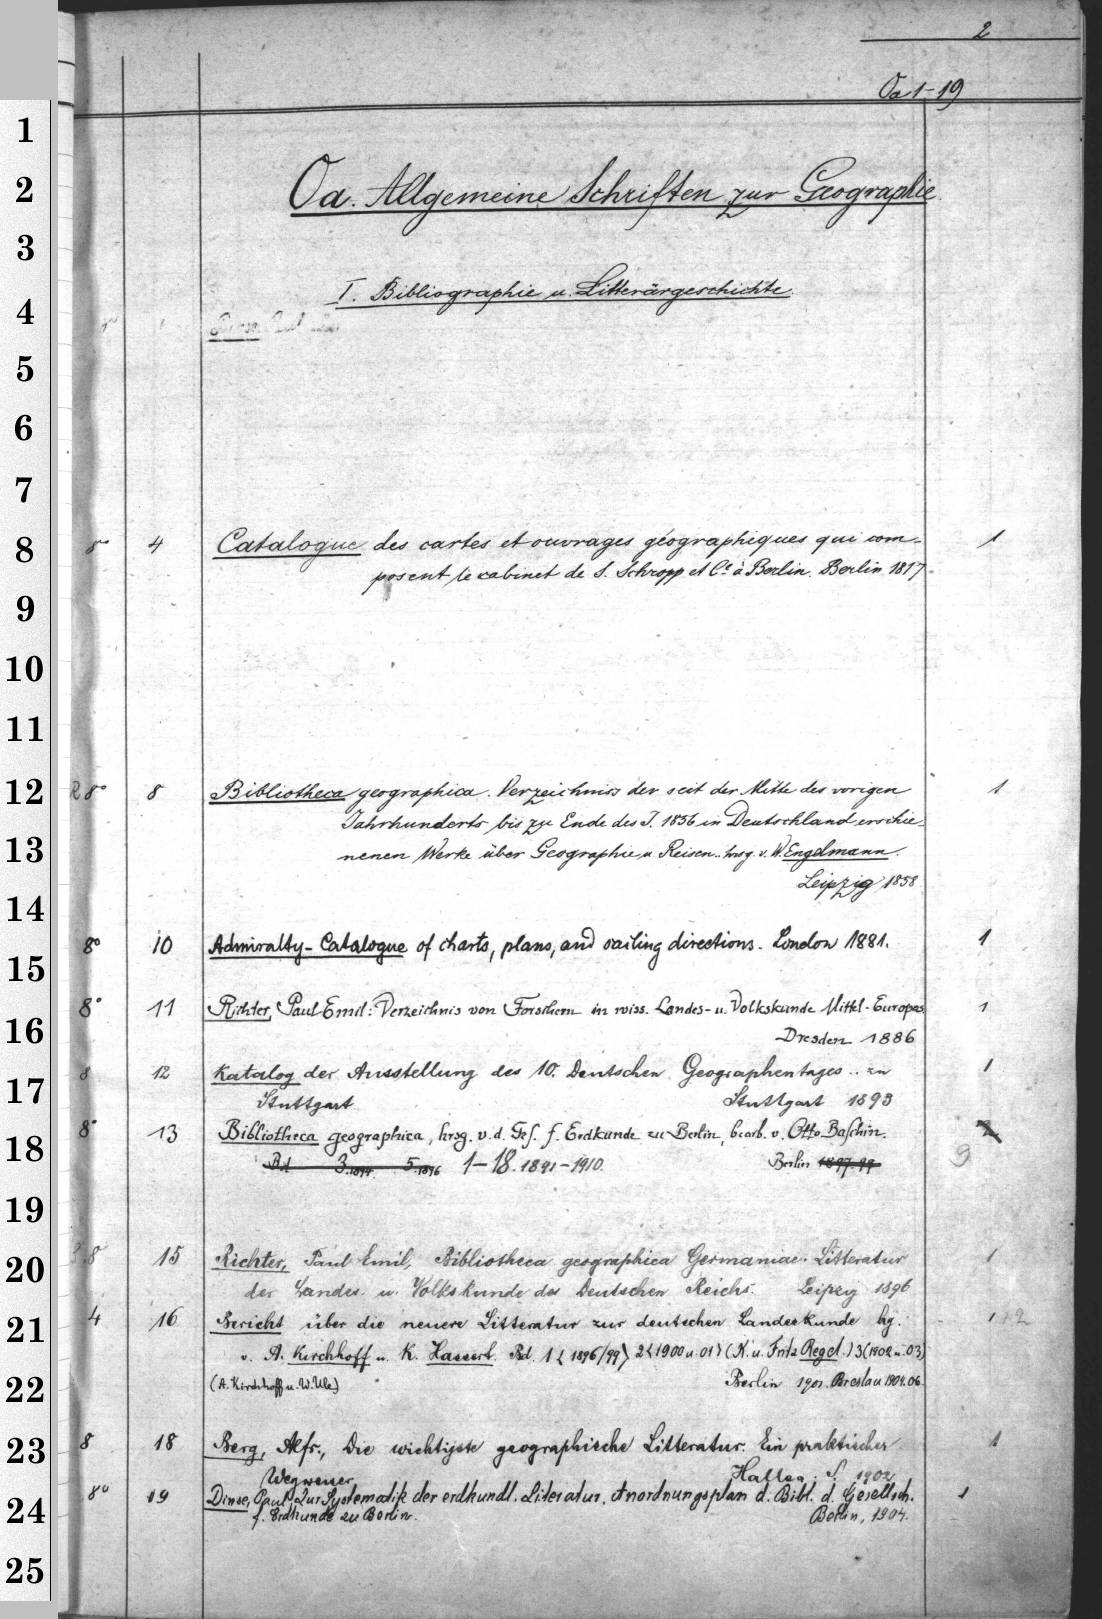 2
Oa 1-19
1
2
3
4
5
6
7
8
9
10
11
12
13
14
15
16
17
18
19
20
21
22
23
24
25
Oa. Allgemeine Schriften zur Geographie.
I. Bibliographie u. Litterärgeschichte.
8° 4 Catalogue des cartes et ouvrages géographiques qui com- 1
posent le cabinet de S. Schropp et Cie à Berlin. Berlin 1817
R 8° 8 Bibliotheca geographica. Verzeichniss der seit der Mitte des vorigen 1
Jahrhunderts bis zu Ende des J. 1856 in Deutschland erschie-
nenen Werke über Geographie u. Reisen.. hrsg. v. W. Engelmann.
Leipzig 1858
8° 10 Admiralty-Catalogue of charts, plans, and sailing directions. London 1881. 1
8° 11 Richter, Paul Emil: Verzeichnis von Forschern in wiss. Landes- u. Volkskunde Mittel-Europas 1
Dresden 1886
8 12 Katalog der Ausstellung des 10. Deutschen Geographentages .. zu 1
Stuttgart Stuttgart 1893
8° 13 Bibliotheca geographica, hrsg. v. d. Ges. f. Erdkunde zu Berlin, bearb. v. Otto Baschin. 2
Bd 3.1894. 5.1896 1-18. 1891-1910. Berlin 1897-99 9
8 15 Richter, Paul Emil, Bibliotheca geographica Germaniae. Litteratur 1
der Landes. u. Volkskunde des Deutschen Reichs. Leipzig 1896
4 16 Bericht über die neuere Litteratur zur deutschen Landeskunde hg. 1+2
v. A. Kirchhoff u. K. Hassert. Bd. 1 (1896/99) 2(1900 u. 01) (K. u. Fritz Regel.) 3(1902 u. 03)
(A. Kirchhoff u. W. Ule) Berlin 1901. Breslau 1904.06
8 18 Berg, Alfr., Die wichtigste geographische Litteratur. Ein praktischer 1
Wegweiser. Halle a. S. 1902
8° 19 Dinse, Paul: Zur Systematik der erdkundl. Literatur. Anordnungsplan d. Bibl. d. Gesellsch. 1
f. Erdkunde zu Berlin. Berlin, 1904.